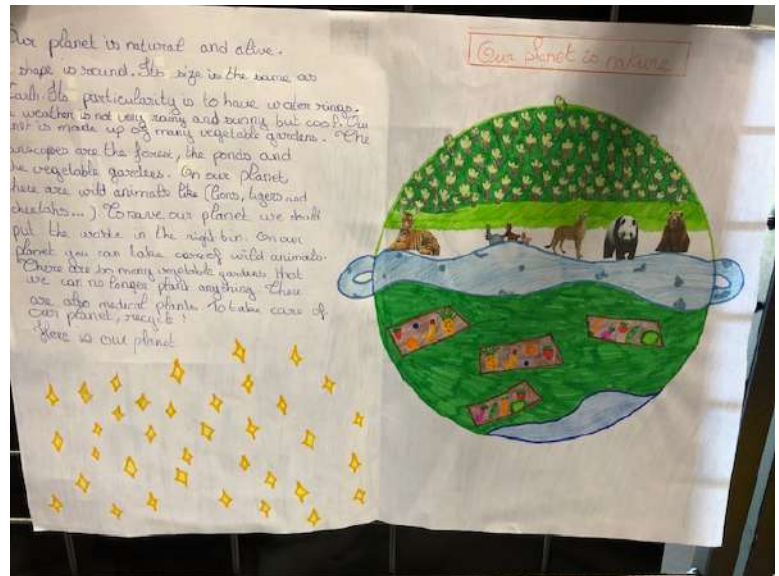 Our planet is nature
Our planet is natural and alive.
shape is round. Its size is the same as
Earth. Its particularity is to have water rings.
weather is not very rainy and sunny but cool. Our
is made up of many vegetable gardens. The
are the forest, the ponds and
the vegetable gardens. On our planet,
there are wild animals like (lions, tigers and
cheetahs...) To save our planet we shall
put the waste in the right bin. On our
planet you can take care of wild animals.
There are so many vegetable gardens that
we can no longer plant anything. There
are also medical plants. To take care of
our planet, recycle!
Here is our planet